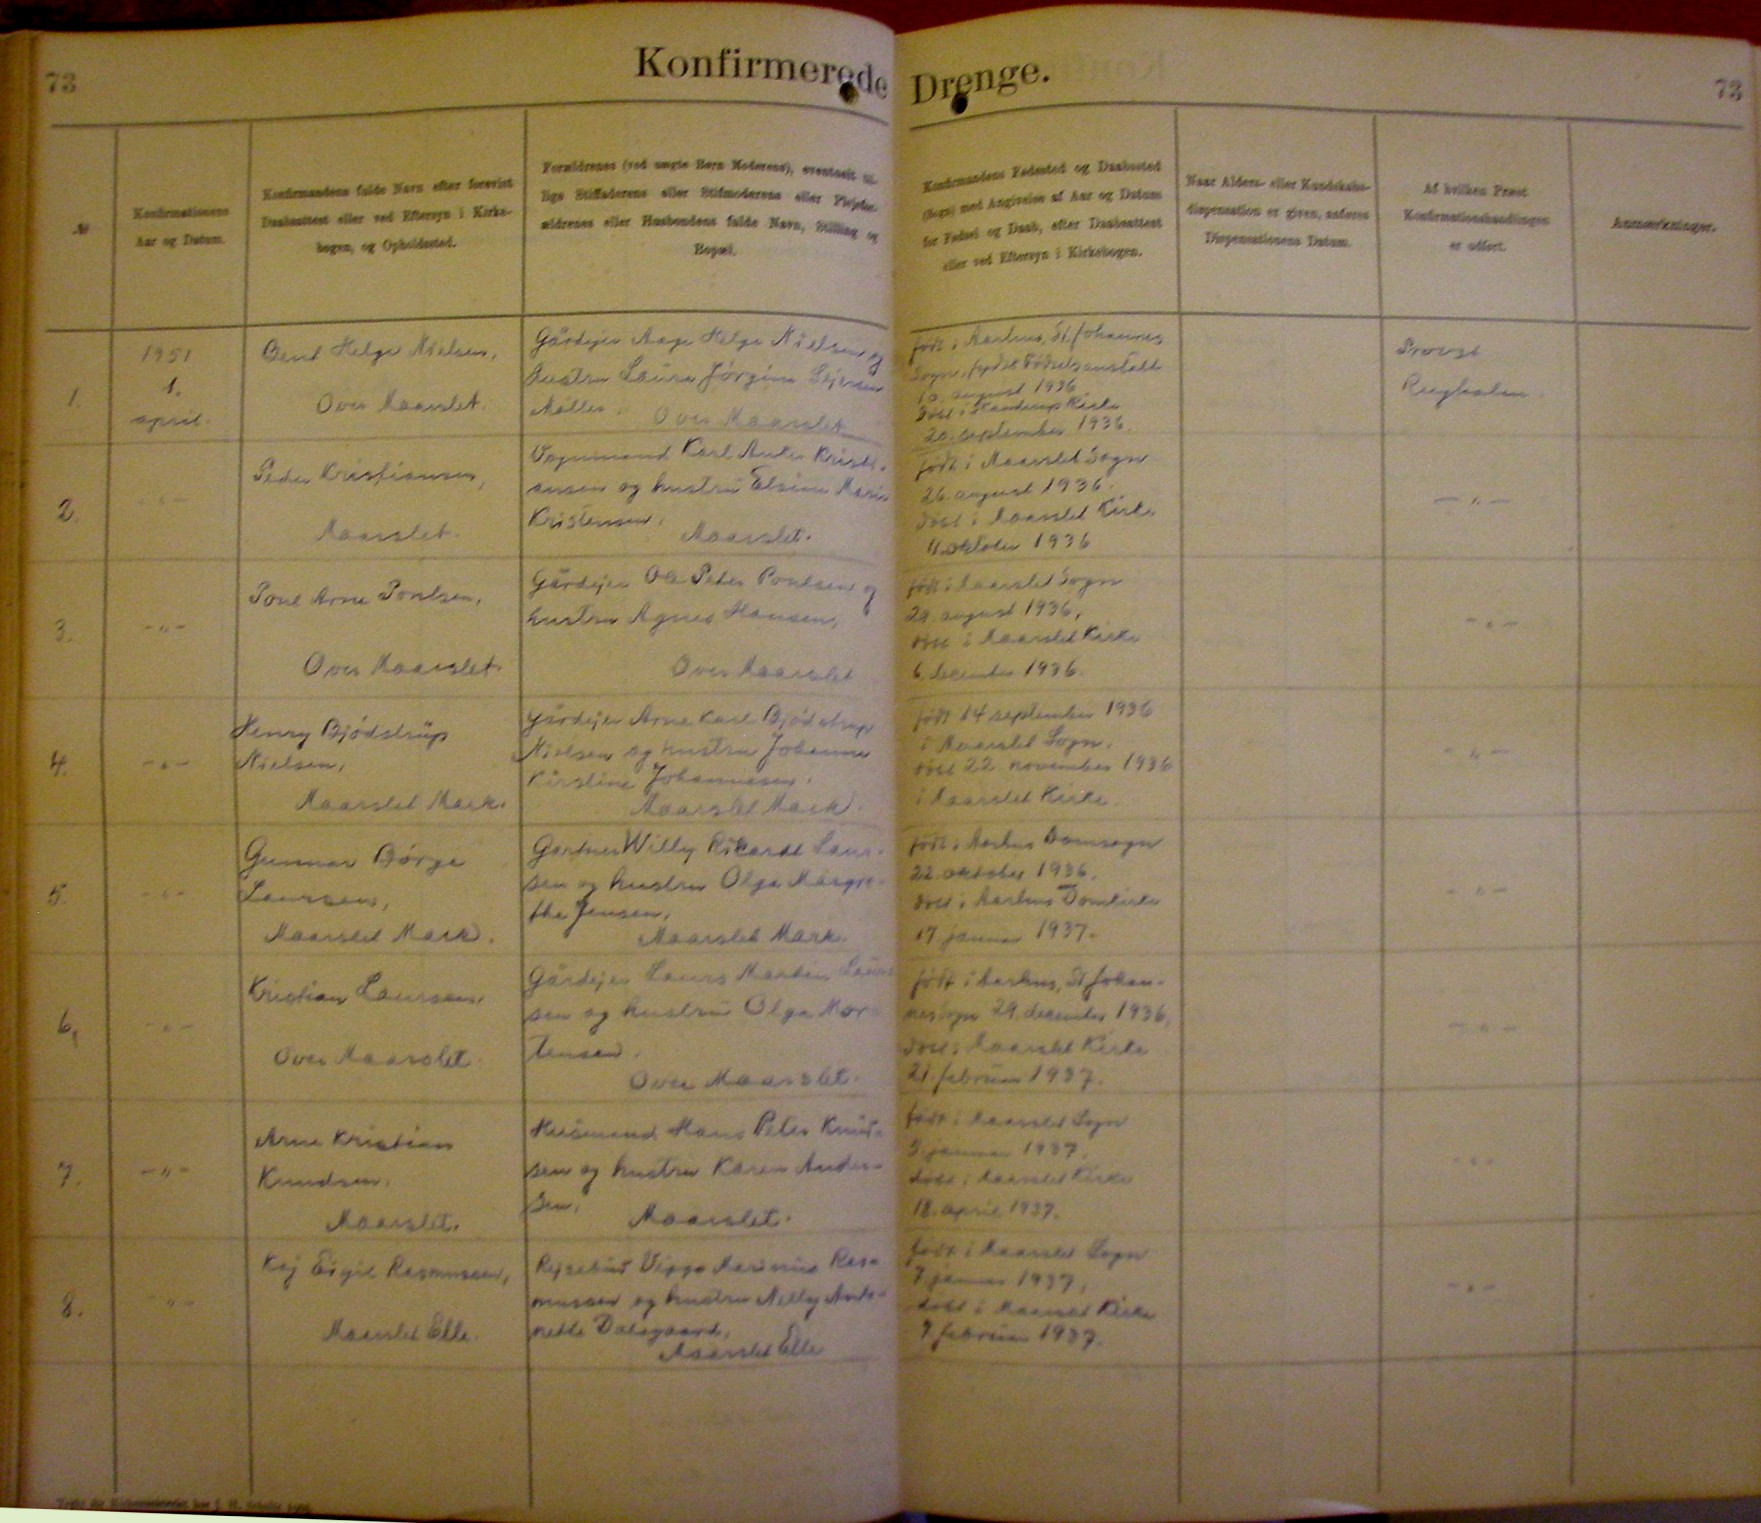 73
Konfirmerede Drenge.
73
№
Konfirmationens
Aar og Datum.
Konfirmandens fulde Navn efter forevist
Daabsattest eller ved Eftersyn i Kirke-
bogen, og Opholdssted.
Forældrenes (ved uægte Børn Moderens), eventuelt til-
lige Stiffaderens eller Stifmoderens eller Plejefor-
ældrenes eller Husbondens fulde Navn, Stilling og
Bopæl.
Konfirmandens Fødested og Daabssted
(Sogn) med Angivelse af Aar og Datum
for Fødsel og Daab, efter Daabsattest
eller ved Eftersyn i Kirkebogen.
Naar Alders- eller Kundskabs-
dispensation er given, anføres
Dispensationens Datum.
Af hvilken Præst
Konfirmationshandlingen
er udført.
Anmærkninger.
1.
1951
1.
april.
Bent Helge Nielsen,
Over Maarslet.
Gårdejer Aage Helge Nielsen og
hustru Laura Jørgine Sejersen
Møller.
Over Maarslet
født i Aarhus, St. Johannes
Sogn, Fødselsanstalt
10. august 1936
døbt i Skanderup Kirke
20. september 1936.
Provst
2.
- " -
Peder Kristiansen,
Maarslet.
Karl Anker Kristi-
ansen og hustru Elsine Marie
Kristensen,
Maarslet.
født i Maarslet Sogn
26. august 1936.
døbt i Maarslet Kirke
11. oktober 1936
- " -
3.
- " -
Poul Arne Poulsen,
Over Maarslet.
Gårdejer Ole Peter Poulsen og
hustru Agnes Hansen,
Over Maarslet
født i Maarslet Sogn
29. august 1936,
døbt i Maarslet Kirke
6. december 1936.
- " -
4.
- " -
Henry Bjødstrup
Nielsen,
Maarslet Mark.
Gårdejer Arne Karl Bjødstrup
Nielsen og hustru Johanne
Kirstine Johannesen.
Maarslet Mark.
født 14 september 1936
i Maarslet Sogn.
døbt 22. november 1936
i Maarslet Kirke.
- " -
5.
- " -
Gunnar Børge
Laursen,
Maarslet Mark.
Gartner Willy Rikardt Laur-
sen og hustru Olga Margre-
the Jensen,
Maarslet Mark.
født i Aarhus Domsogn
22. oktober 1936.
døbt i Aarhus Domkirke
17 januar 1937.
- " -
6.
- " -
Kristian Laursen,
Over Maarslet.
Gårdejer Laurs Martin Laur-
sen og hustru Olga Mor-
tensen.
Over Maarslet.
født i Aarhus, St. Johan-
nes Sogn 29. december 1936,
døbt i Maarslet Kirke
21. februar 1937.
- " -
7.
- " -
Arne Kristian
Knudsen,
Maarslet.
Husmand Hans Peter Knud-
sen og hustru Karen Ander-
sen,
Maarslet.
født i Maarslet Sogn
3. januar 1937.
døbt i Maarslet Kirke
18. april 1937.
- " -
8.
- " -
Kaj Eigil Rasmussen,
Maarslet Elle.
Rejsebud Viggo Marinus Ras-
mussen og hustru Nelly Anto-
nette Dalsgaard,
Maarslet Elle
født i Maarslet Sogn
7. januar 1937,
døbt i Maarslet Kirke
7 februar 1937.
- " -